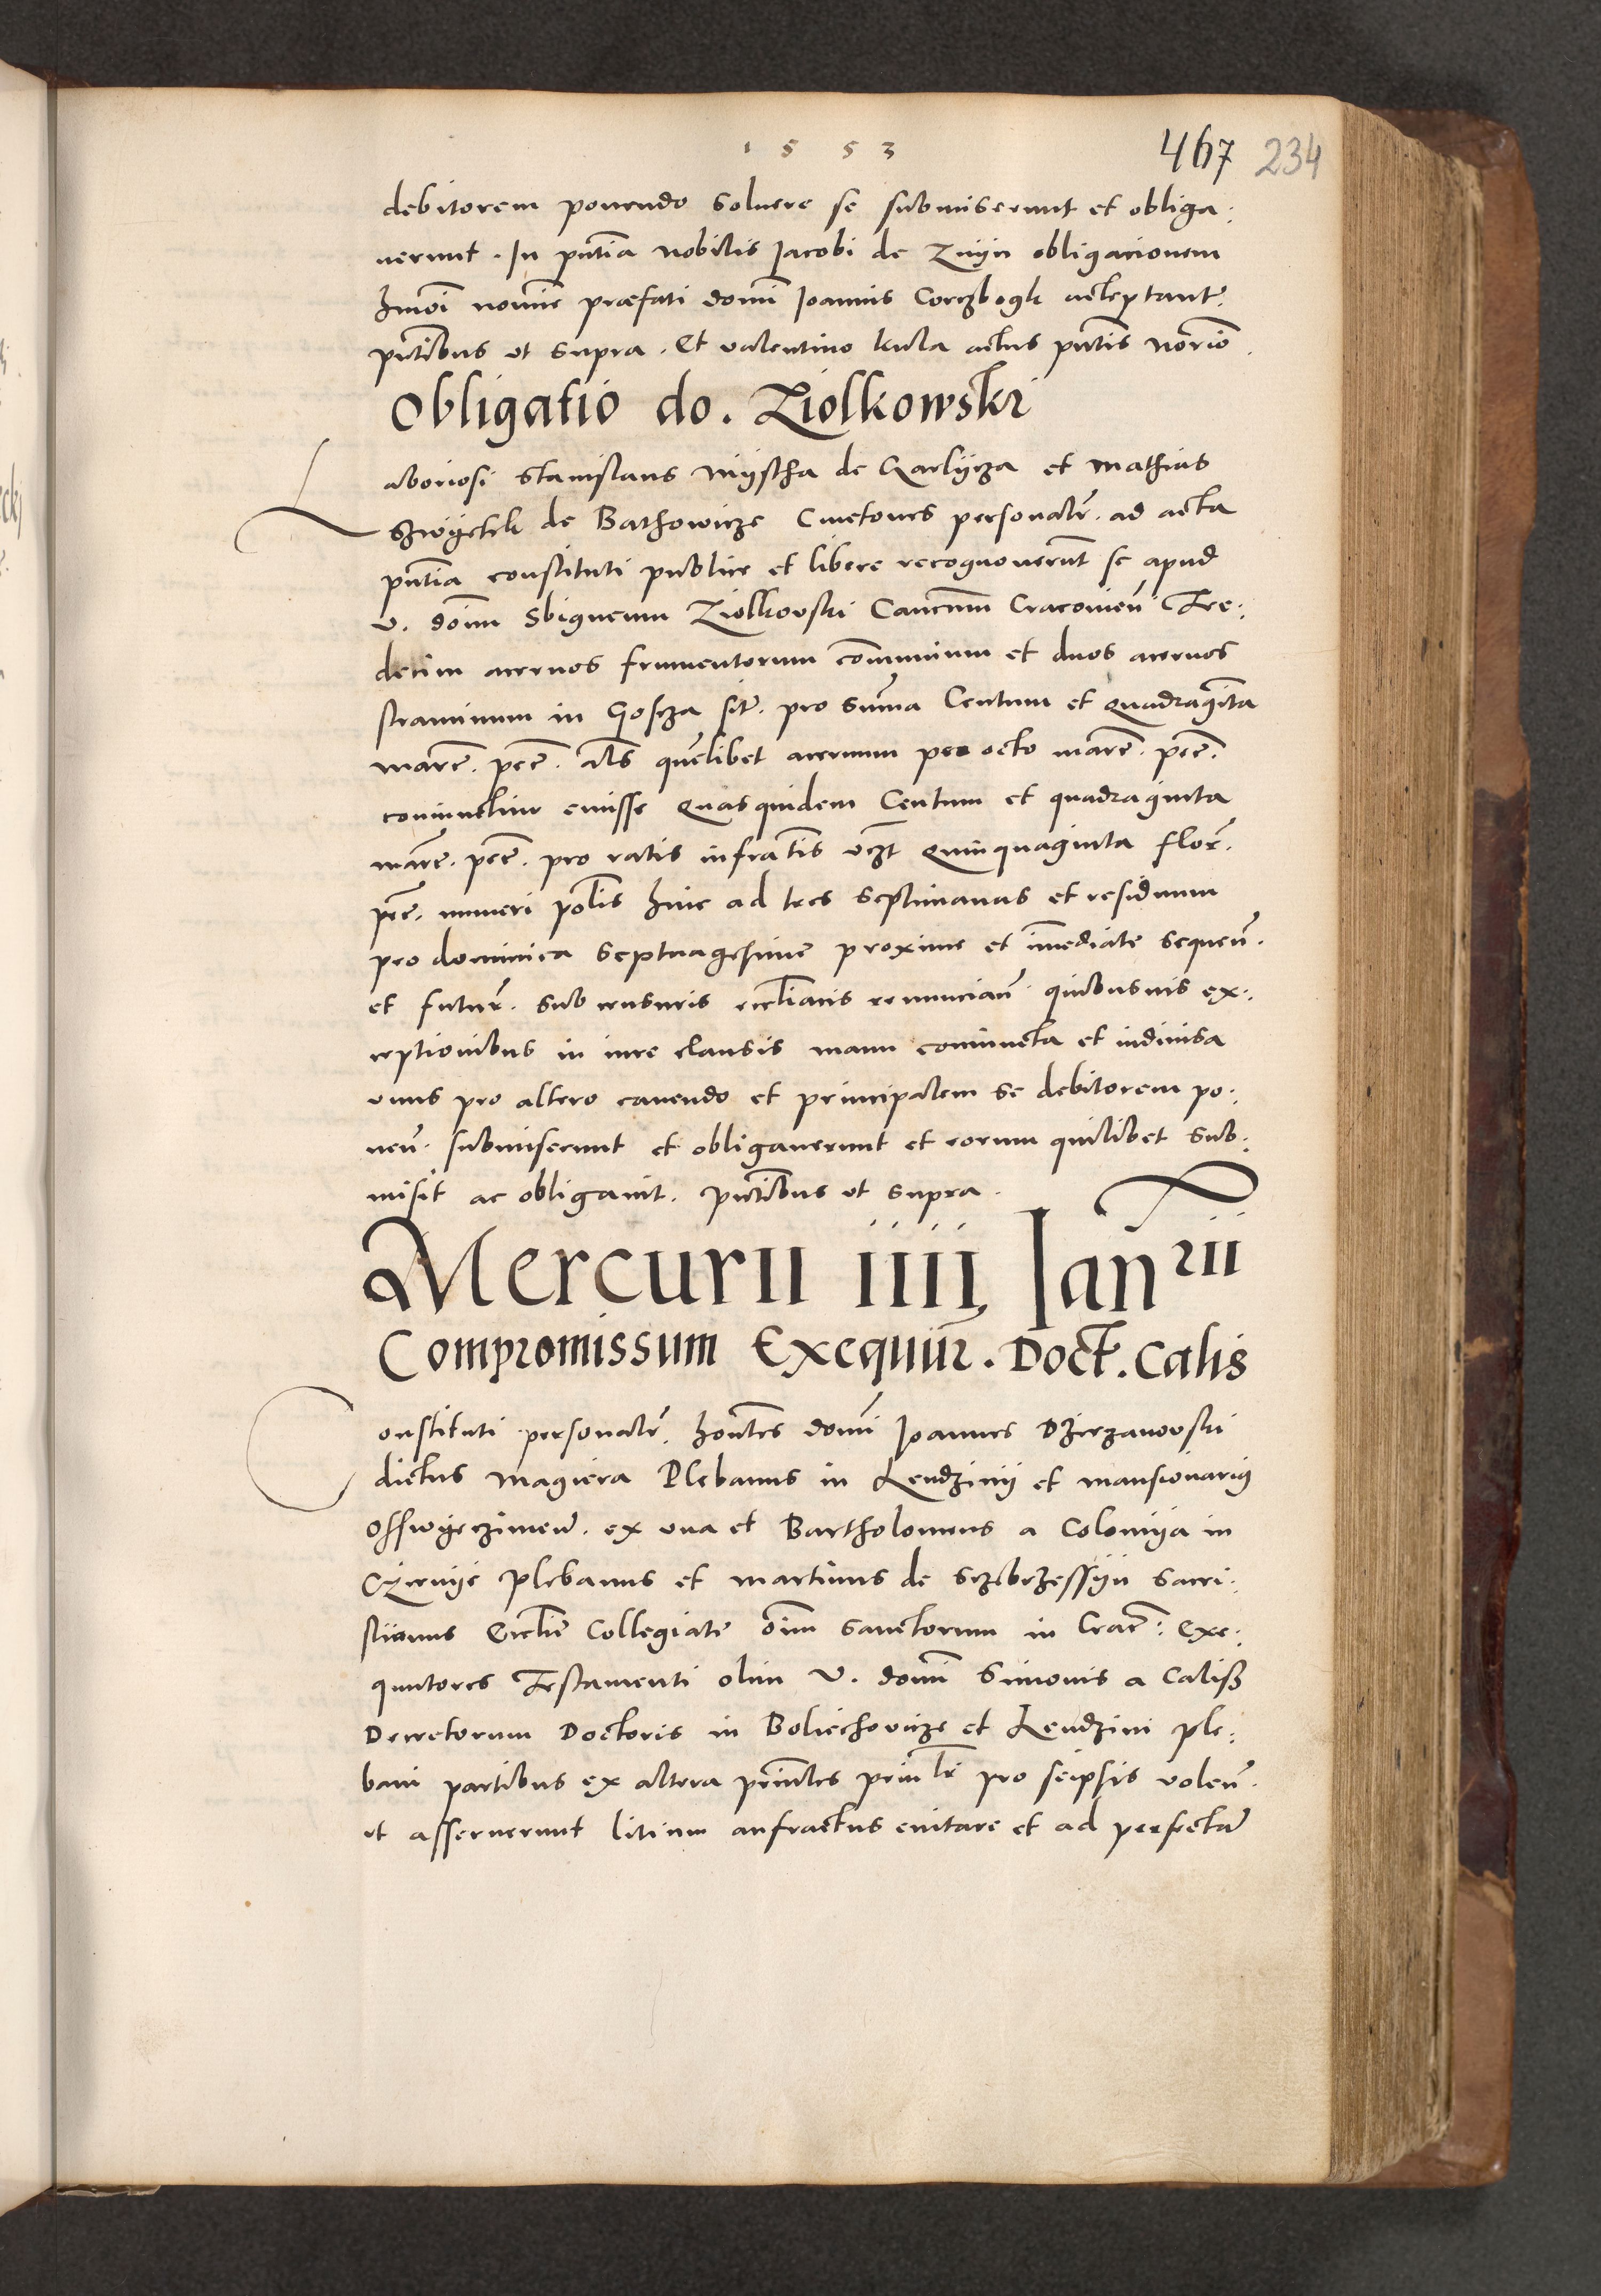 1 5 5 3
467 234
debitorem ponendo soluere se submiserunt et obliga:
uerunt. In pntia nobilis Jacobi de Znijn obligacionem
hmoi nomine præfati domi Joannis Corczbogk acceptant.
pntibus ut supra. Et valentino kula actus pntis norio.
Obligatio do. Ziolkowski
Laboriosi Stanislaus Mijscha de Karlijcza et Mathias
de Bathowicze Cmetones personalr. ad acta
pntia constituti publice et libere recognouerunt se apud
v. domi Sbigneum Ziolkovski Cancnm Cracouien Tre:
decim aceruos frumentorum communium et duos aceruos
straminum in Goscza sit. pro summa Centum et Quadraginta
marc. pec. als quelibet aceruum per octo marc. pec.
coniunctim emisse Quasquidem Centum et quadraginta
marc. pec. pro ratis infractis vczt Quinquaginta flor.
pec. numeri polis hinc ad tres septimanas et residuum
pro dominica Septuagesime proxime et immediate sequen.
et futur. sub censuris ecclacis renuncian quibusuis ex:
ceptionibus in iure clausis manu coniuncta et indiuisa
unus pro altero cauendo et principalem se debitorem po:
nen. submiserunt et obligauerunt et eorum quilibet sub:
misit ac obligauit. pntibus ut supra.
Mercurii iiij Janrii
Compromissum Exequur. Doct. Calis
Constituti personalr. hontes domi Joannes Dzierzanovski
dictus Magiera Plebanus in Lendzinij et mansionarius
Osswijeczimen. ex una et Bartholomeus a Colomija in
Czirnije plebanus et Martinus de Sczebrzessijn Sacri:
stianus Ecclie Collegiate oim Sanctorum in Crac: Exe:
quutores Testamenti olim V. domi Simonis a Calisz
Decretorum Doctoris in Boliechovicze et Lendzini ple:
bani partibus ex altera prinles prinlr pro seipsis volen.
ut asseruerunt litium anfractus euitare et ad perfectam